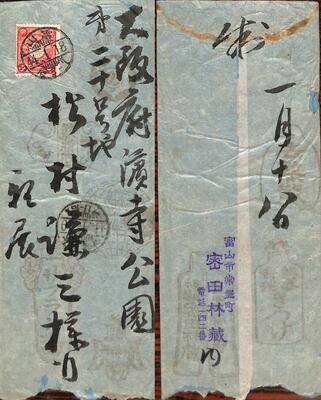 大阪府濱寺公園
第二十号地
松村謙三様
親展
一月十八日
富山市常盤町
密田林蔵
電話一四二番
内